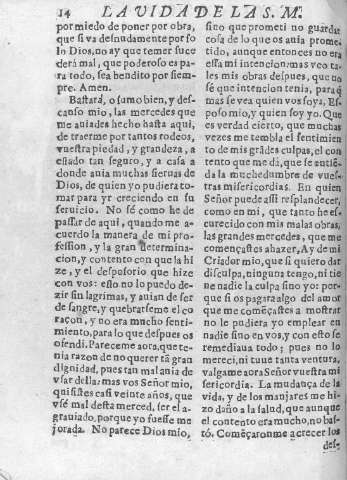 14 LA VIDA DE LA S. M.
por miedo de poner por obra,
que si va desnudamente por so
lo Dios, no ay que temer suce
derá mal, que poderoso es pa-
ra todo, sea bendito por siem-
pre. Amen.
Bastará, o sumo bien, y des-
canso mio, las mercedes que
me auiades hecho hasta aqui,
de traerme por tantos rodeos,
vuestra piedad, y grandeza, a
estado tan seguro, y a casa a
donde auia muchas sieruas de
Dios, de quien yo pudiera to-
mar para yr creciendo en su
seruicio. No sé como he de
passar de aqui, quando me a-
cuerdo la manera de mi pro-
fession, y la gran determina-
cion, y contento con que la hi
ze, y el desposorio que hize
con vos: esto no lo puedo de-
zir sin lagrimas, y auian de ser
de sangre, y quebrarseme el co
raçon, y no era mucho senti-
miento, para lo que despues os
ofendi. Pareceme aora, que te-
nia razon de no querer tã gran
dignidad, pues tan mal auia de
vsar della: mas vos Señor mio,
quisistes casi veinte años, que
vsé mal desta merced, ser el a-
grauiado, porque yo fuesse me
jorada. No parece Dios mio,
sino que prometi no guardar
cosa de lo que os auia prome-
tido, aunque entonces no era
essa mi intencion: mas veo ta-
les mis obras despues, que no
sé que intencion tenia, para q̃
mas se vea quien vos soys, Es-
poso mio, y quien soy yo. Que
es verdad cierto, que muchas
vezes me templa el sentimien
to de mis grãdes culpas, el con
tento que me dá, que se entiẽ-
da la muchedumbre de vues-
tras misericordias. En quien
Señor puede assi resplandecer,
como en mi, que tanto he es-
curecido con mis malas obras,
las grandes mercedes, que me
començastes a hazer, Ay de mi
Criador mio, que si quiero dar
disculpa, ninguna tengo, ni tie
ne nadie la culpa sino yo: por-
que si os pagara algo del amor
que me comẽçastes a mostrar
no le pudiera yo emplear en
nadie sino en vos, y con esto se
remediaua todo; pues no lo
mereci, ni tuue tanta ventura,
valgame aora Señor vuestra mi
sericordia. La mudança de la
vida, y de los manjares me hi-
zo daño a la salud, que aunque
el contento era mucho, no bas-
tó. Comẽçaronme a crecer los
des-